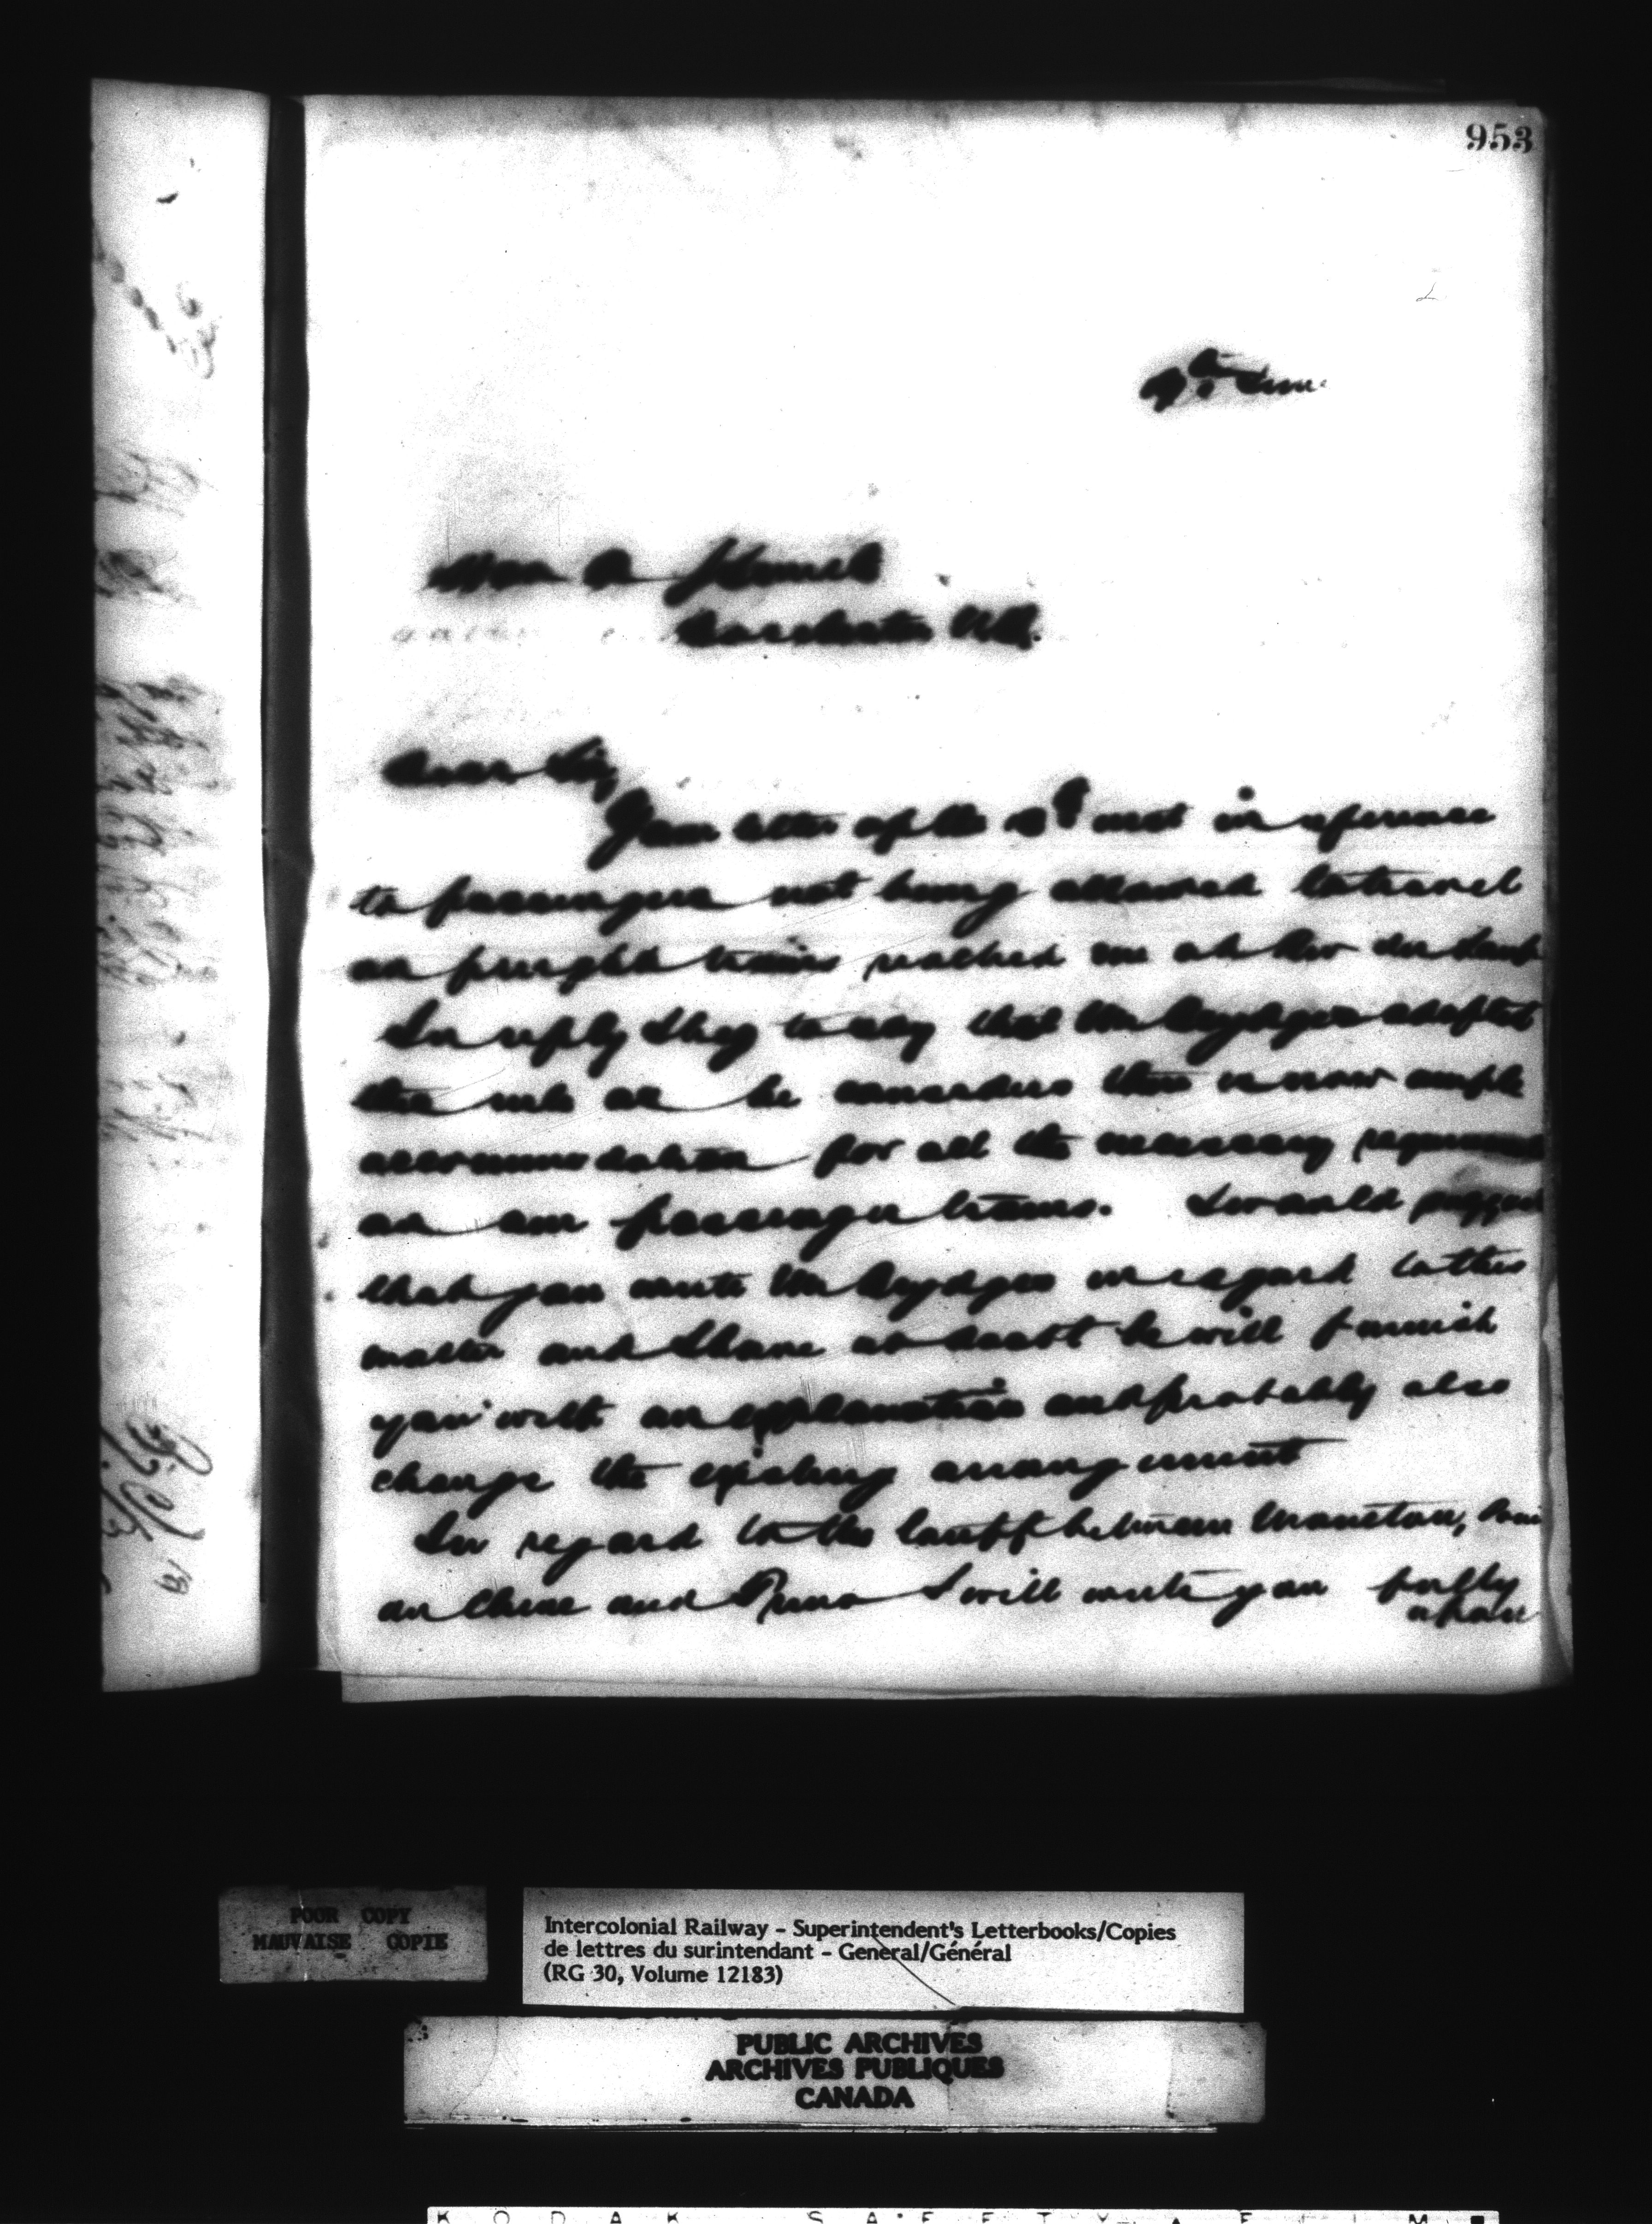 953
9th June
Dorchester N.B.
Dear Sir,
Your letter of the inst in reference
to passengers not being allowed to travel
on freight trains reached me at Riv du Loup
In reply I beg to say that Mr Brydges adopted
this rule as he considers there is now ample
accommodation for all the necessary
on our passenger trains. I would suggest
that you write Mr Brydges in regard to this
matter and I have no doubt he will furnish
you with an explanation and probably also
change the existing arrangement
In regard to the tariff between Moncton,
au Chene and I will write you fully
upon
POOR COPY
MAUVAISE COPIE
Intercolonial Railway - Superintendent's Letterbooks/Copies
de lettres du surintendant - General/Général
(RG 30, Volume 12183)
PUBLIC ARCHIVES
ARCHIVES PUBLIQUES
CANADA
KODAK SAFETY FILM